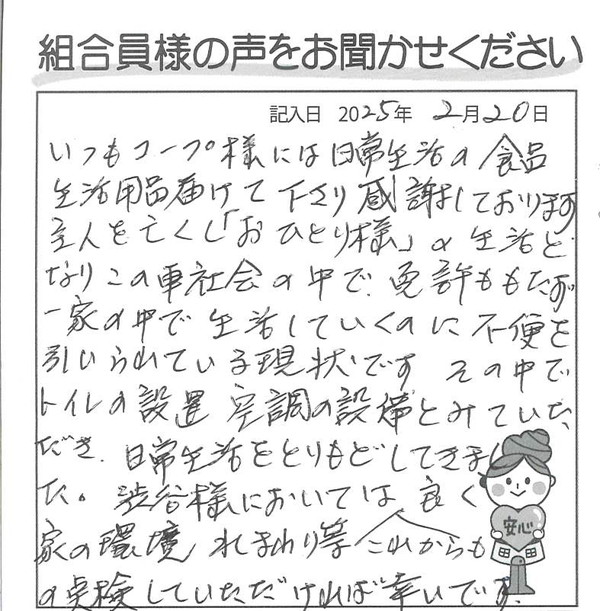 組合員様の声をお聞かせください
記入日 2025年 2月20日
いつもコープ様には日常生活の食品
生活用品届けて下さり感謝しております
主人を亡くし「おひとり様」の生活と
なりこの車社会の中で、免許ももたず
一家の中で生活していくのに不便を
引いられている現状です その中で
トイレの設置 空調の設備とみていた
だき、日常生活をとりもどしてきまし
た。渋谷様においては良く
家の環境 水まわり等 これからも
の点検していただければ幸いです
安心